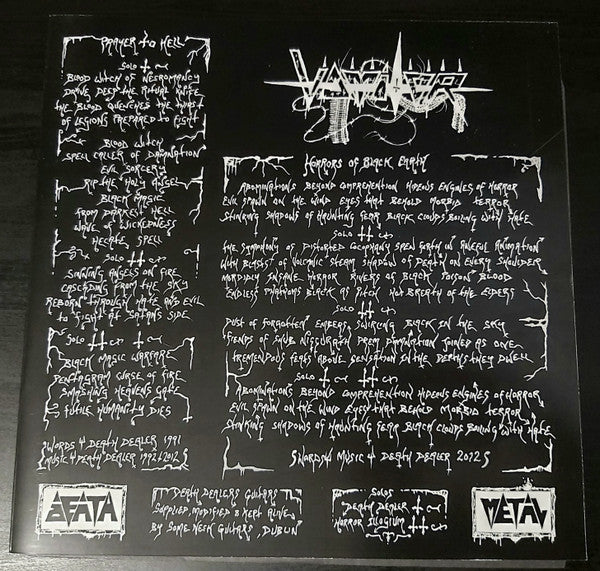 PRAYER to HELL
SOLO
BLOOD WITCH OF NECROMANCY
DRIVE DEEP THE RITUAL KNIFE
THE BLOOD QUENCHES THE THIRST
OF LEGIONS PREPARED TO FIGHT
BLOOD WITCH
SPELL CALLER OF DAMNATION
EVIL SORCERY
RIP THE HOLY ANGEL
BLACK MAGIC
FROM DARKEST HELL
WAVE OF WICKEDNESS
HECATE SPELL
SOLO
SINNING ANGELS ON FIRE
CASCADING FROM THE SKY
REBORN THROUGH HATE AND EVIL
TO FIGHT AT SATANS SIDE
SOLO
BLACK MAGIC WARFARE
PENTAGRAM CURSE OF FIRE
SMASHING HEAVENS GATE
FUTILE HUMANITY DIES
WORDS 4 DEATH DEALER 1991
MUSIC 4 DEATH DEALER 1992/2012
HORRORS OF BLACK EARTH
ABOMINATIONS BEYOND COMPREHENTION HIDEOUS ENGINES OF HORROR
EVIL SPAWN ON THE WIND EYES THAT BEHOLD MORBID TERROR
STINKING SHADOWS OF HAUNTING FEAR BLACK CLOUDS BOILING WITH HATE
SOLO
THE SYMPHONY OF DISTORTED COCOPHANY SPEN BIRTH IN ANIMATION
WITH BLASTS OF VOLCANIC STEAM SHADOW OF DEATH ON EVERY SHOULDER
MORDIDLY INSANE HORROR RIVERS OF BLACK POISON BLOOD
ENDLESS PHATHOMS BLACK AS PITCH HOT BREATH OF THE ELDERS
SOLO
DUST OF FORGOTTEN EMBERS, BLACK IN THE SKY
FIENDS OF SHUB NIGGURATH DREM DAMNATION JOINED AS ONE
TREMENDOUS FEATS ABOVE SENSATION IN THE DEPTHS THEY DWELL
SOLO
ABOMINATIONS BEYOND COMPREHENTION HIDEOUS ENGINES OF HORROR
EVIL SPAWN ON THE WIND EYES THAT BEHOLD MORBID TERROR
STINKING SHADOWS OF HAUNTING FEAR BLACK CLOUDS BOILING WITH HATE
WORDS 4 MUSIC 4 DEATH DEALER 2012
DEATH DEALERS GUITARS
SUPPLIED, MODIFIED & KEPT ALIVE
BY SOME NECK GUITARS, DUBLIN
SOLOS
DEATH DEALER
HORROR ILLOGIUM
METAL